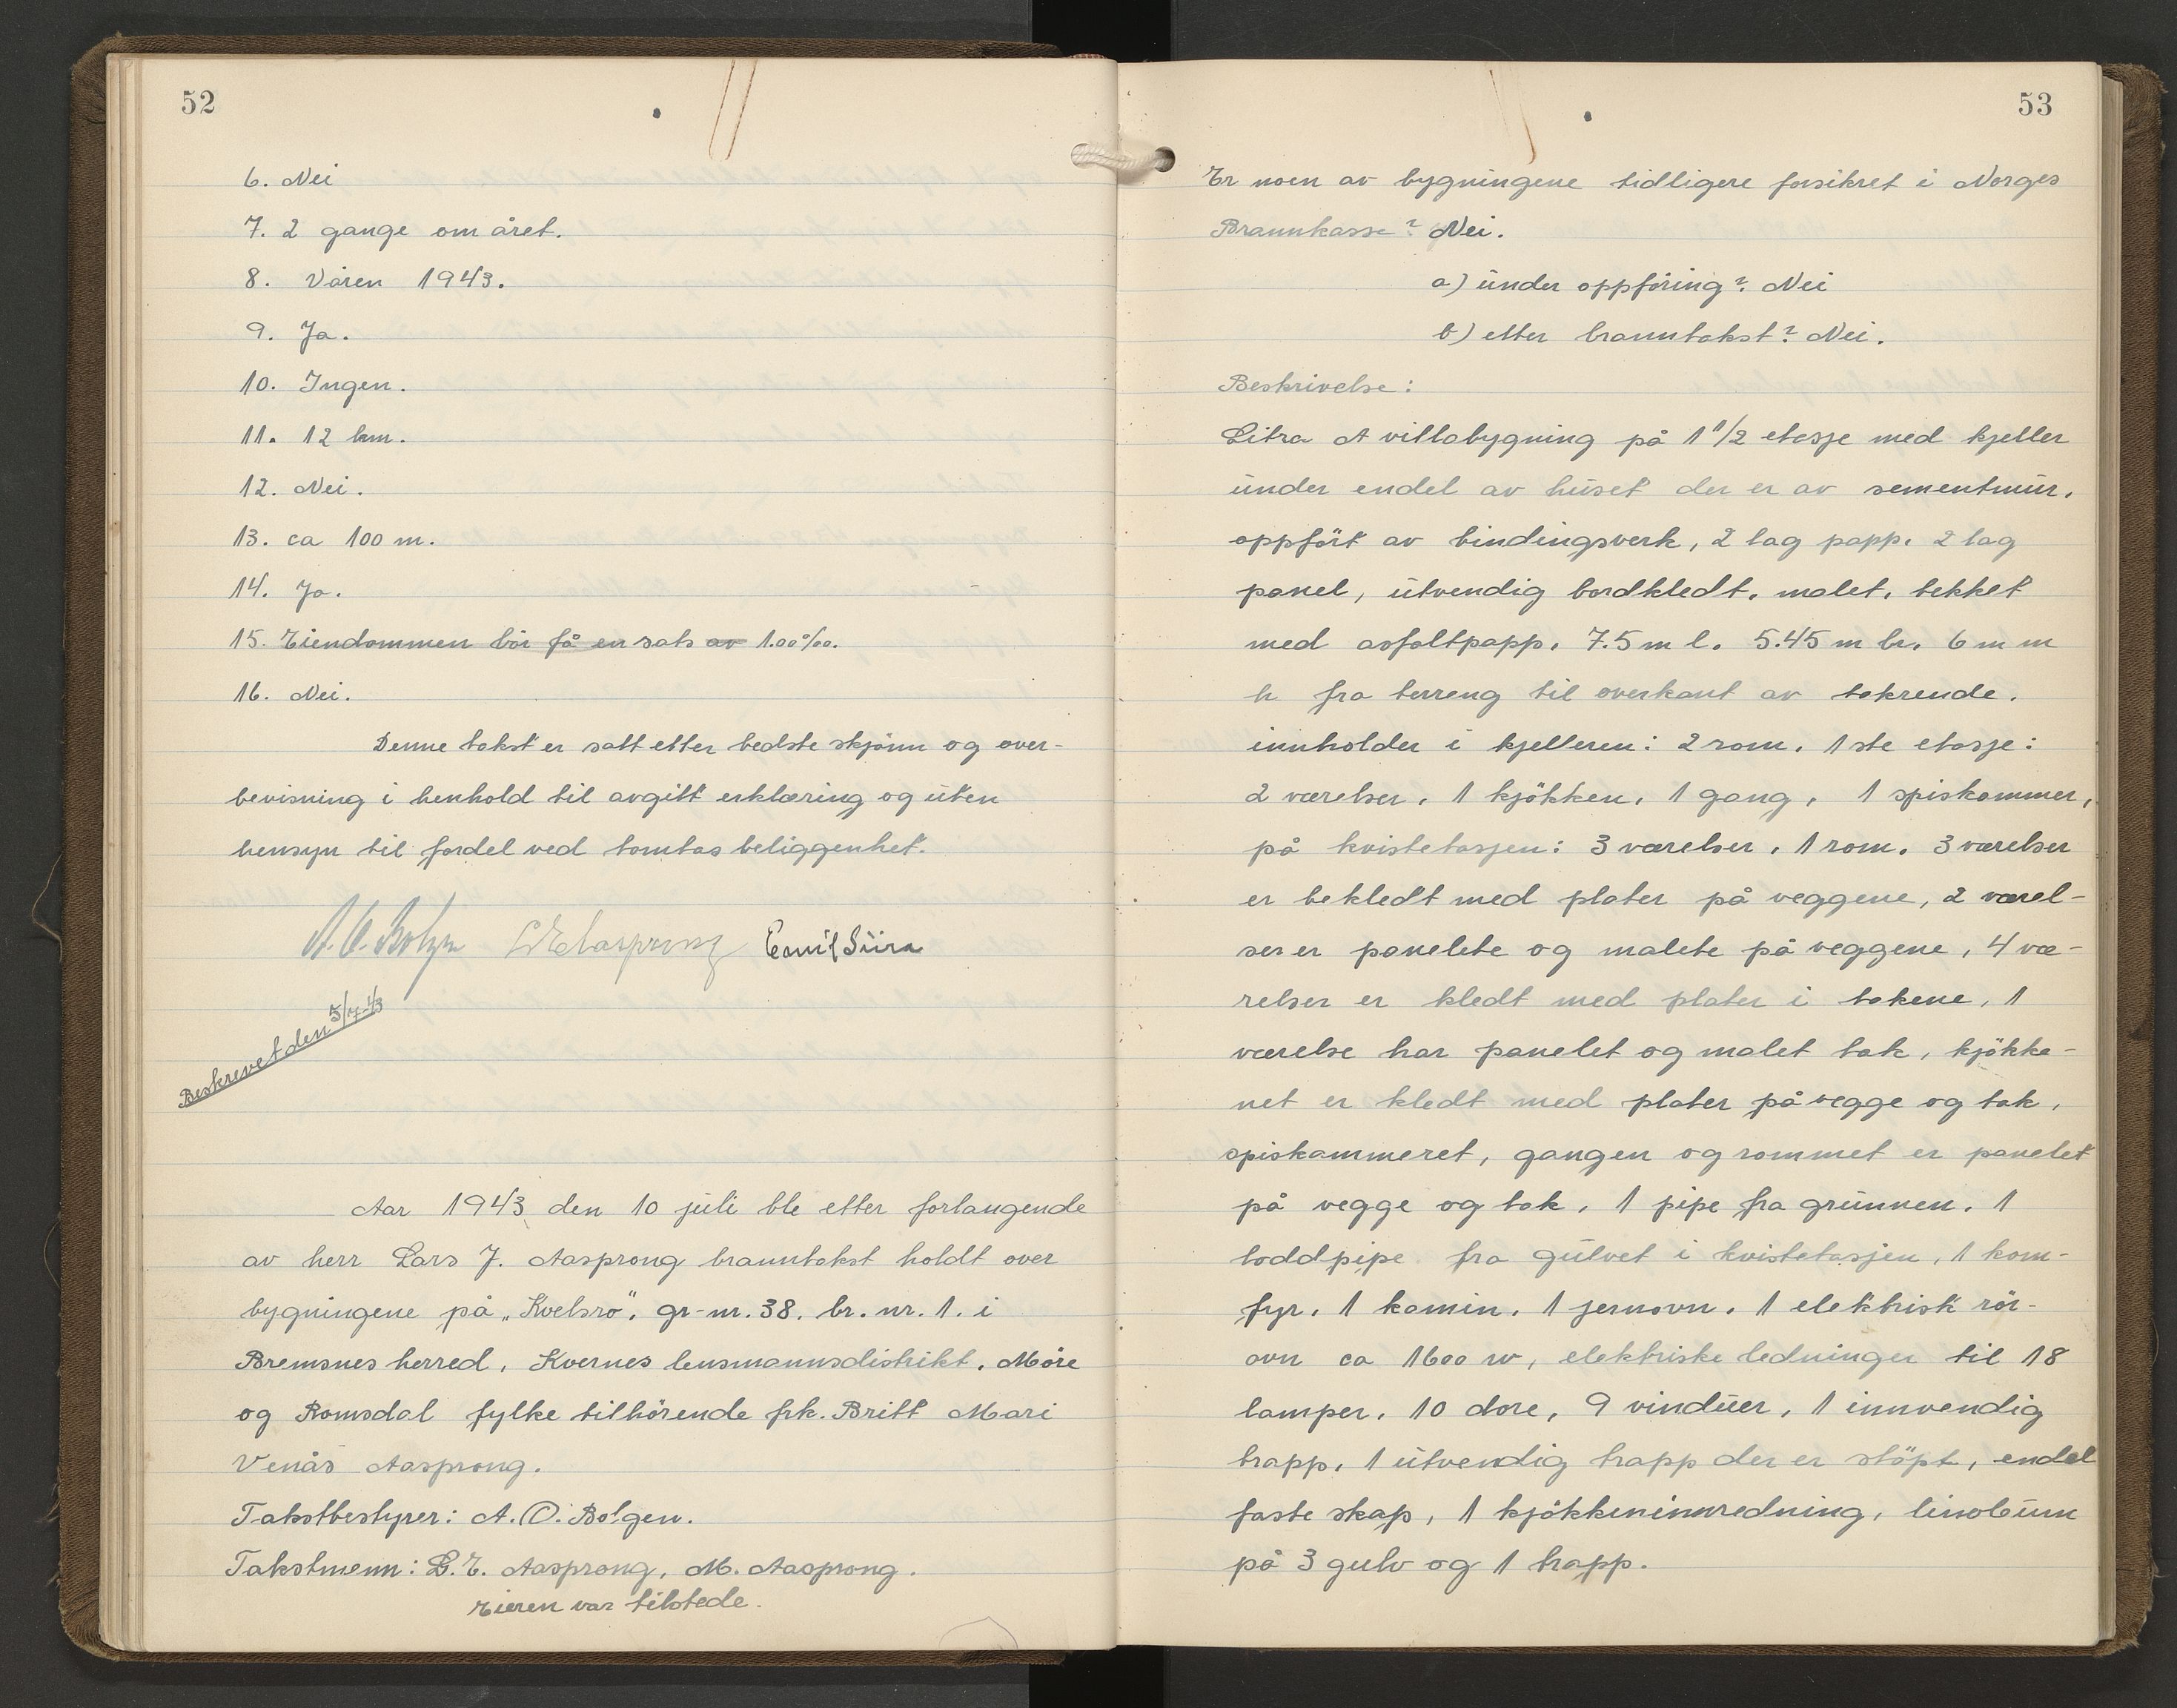 52
6. Nei
7. 2 gange om året.
8. Våren 1943.
9. Ja.
10. Ingen.
11. 12 km.
12. Nei.
13. ca 100 m.
14. Ja.
15. Eiendommen bör få en sats av 1.00‰.
16. Nei.
Denne takst er satt etter bedste skjönn og over-
bevisning i henhold til avgitt erklæring og uten
hensyn til fordel ved tomtas beliggenhet.
A. O. Bolgen L E Aasprong Emil Siira
Beskrevet den 5/7-43
Aar 1943 den 10 juli ble etter forlangende
av herr Lars J. Aasprong branntakst holdt over
bygningene på „Kvelsro", gr-nr. 38. br. nr. 1. i
Bremsnes herred, Kvernes lensmannsdistrikt, Möre
og Romsdal fylke tilhörende frk. Britt Mari
Venås Aasprong.
Takstbestyrer: A. O. Bolgen.
Takstmenn: L. E. Aasprong, M. Aasprong.
Eieren var tilstede.
53
Er noen av bygningene tidligere forsikret i Norges
Brannkasse? Nei.
a) under oppföring? Nei
b) etter branntakst? Nei.
Beskrivelse:
Litra A villabygning på 1 1/2 etasje med kjeller
under endel av huset der er av sementmur,
oppfört av bindingsverk, 2 lag papp, 2 lag
panel, utvendig bordkledt, malet, tekket
med asfaltpapp, 7.5 m l. 5.45 m br. 6 m m
h fra terreng til overkant av takrende,
innholder i kjelleren: 2 rom, 1ste etasje:
2 værelser, 1 kjökken, 1 gang, 1 spiskammer,
på kvistetasjen: 3 værelser, 1 rom. 3 værelser
er bekledt med plater på veggene, 2 værel-
ser er panelete og malete på veggene, 4 væ-
relser er kledt med plater i takene, 1
værelse har panelet og malet tak, kjökke-
net er kledt med plater på vegge og tak,
spiskammeret, gangen og rommet er panelet
på vegge og tak, 1 pipe fra grunnen, 1
loddpipe fra gulvet i kvistetasjen, 1 kom-
fyr, 1 kamin, 1 jernovn, 1 elektrisk rör-
ovn ca 1600 w, elektriske ledninger til 18
lamper, 10 dore, 9 vinduer, 1 innvendig
trapp, 1 utvendig trapp der er stöpt, endel
faste skap, 1 kjökkeninnredning, linoleum
på 3 gulv og 1 trapp.